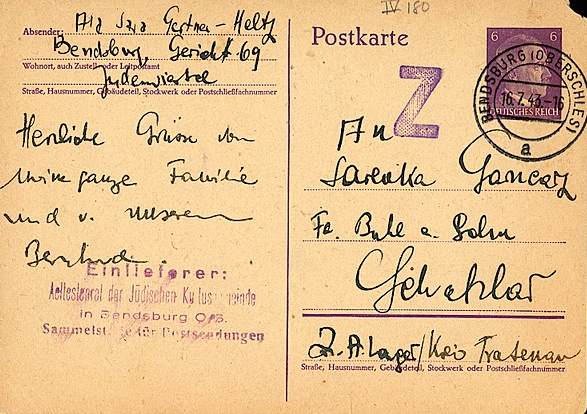 IV 180
Absender:
Gertner-Heltz
Bendsburg, Gericht 69
Wohnort, auch Zustell- oder Leitpostamt
Judenviertel
Straße, Hausnummer, Gebäudeteil, Stockwerk oder Postschließfachnummer
Herzliche Grüsse von
meine ganze Familie
und v. unseren
Einlieferer:
Aeltestenrat der Jüdischen Kultusgemeinde
in Bendsburg O/S.
Sammelstelle für Postsendungen
Postkarte
6 6
DEUTSCHES REICH
BENDSBURG (OBERSCHLES)
16.7.43.-16
a
Z
An
Sarenka Goncarz
Fa. Buhl u. Sohn
Schatzlar
Z. A. Lager/Kreis Trautenau
Straße, Hausnummer, Gebäudeteil, Stockwerk oder Postschließfachnummer